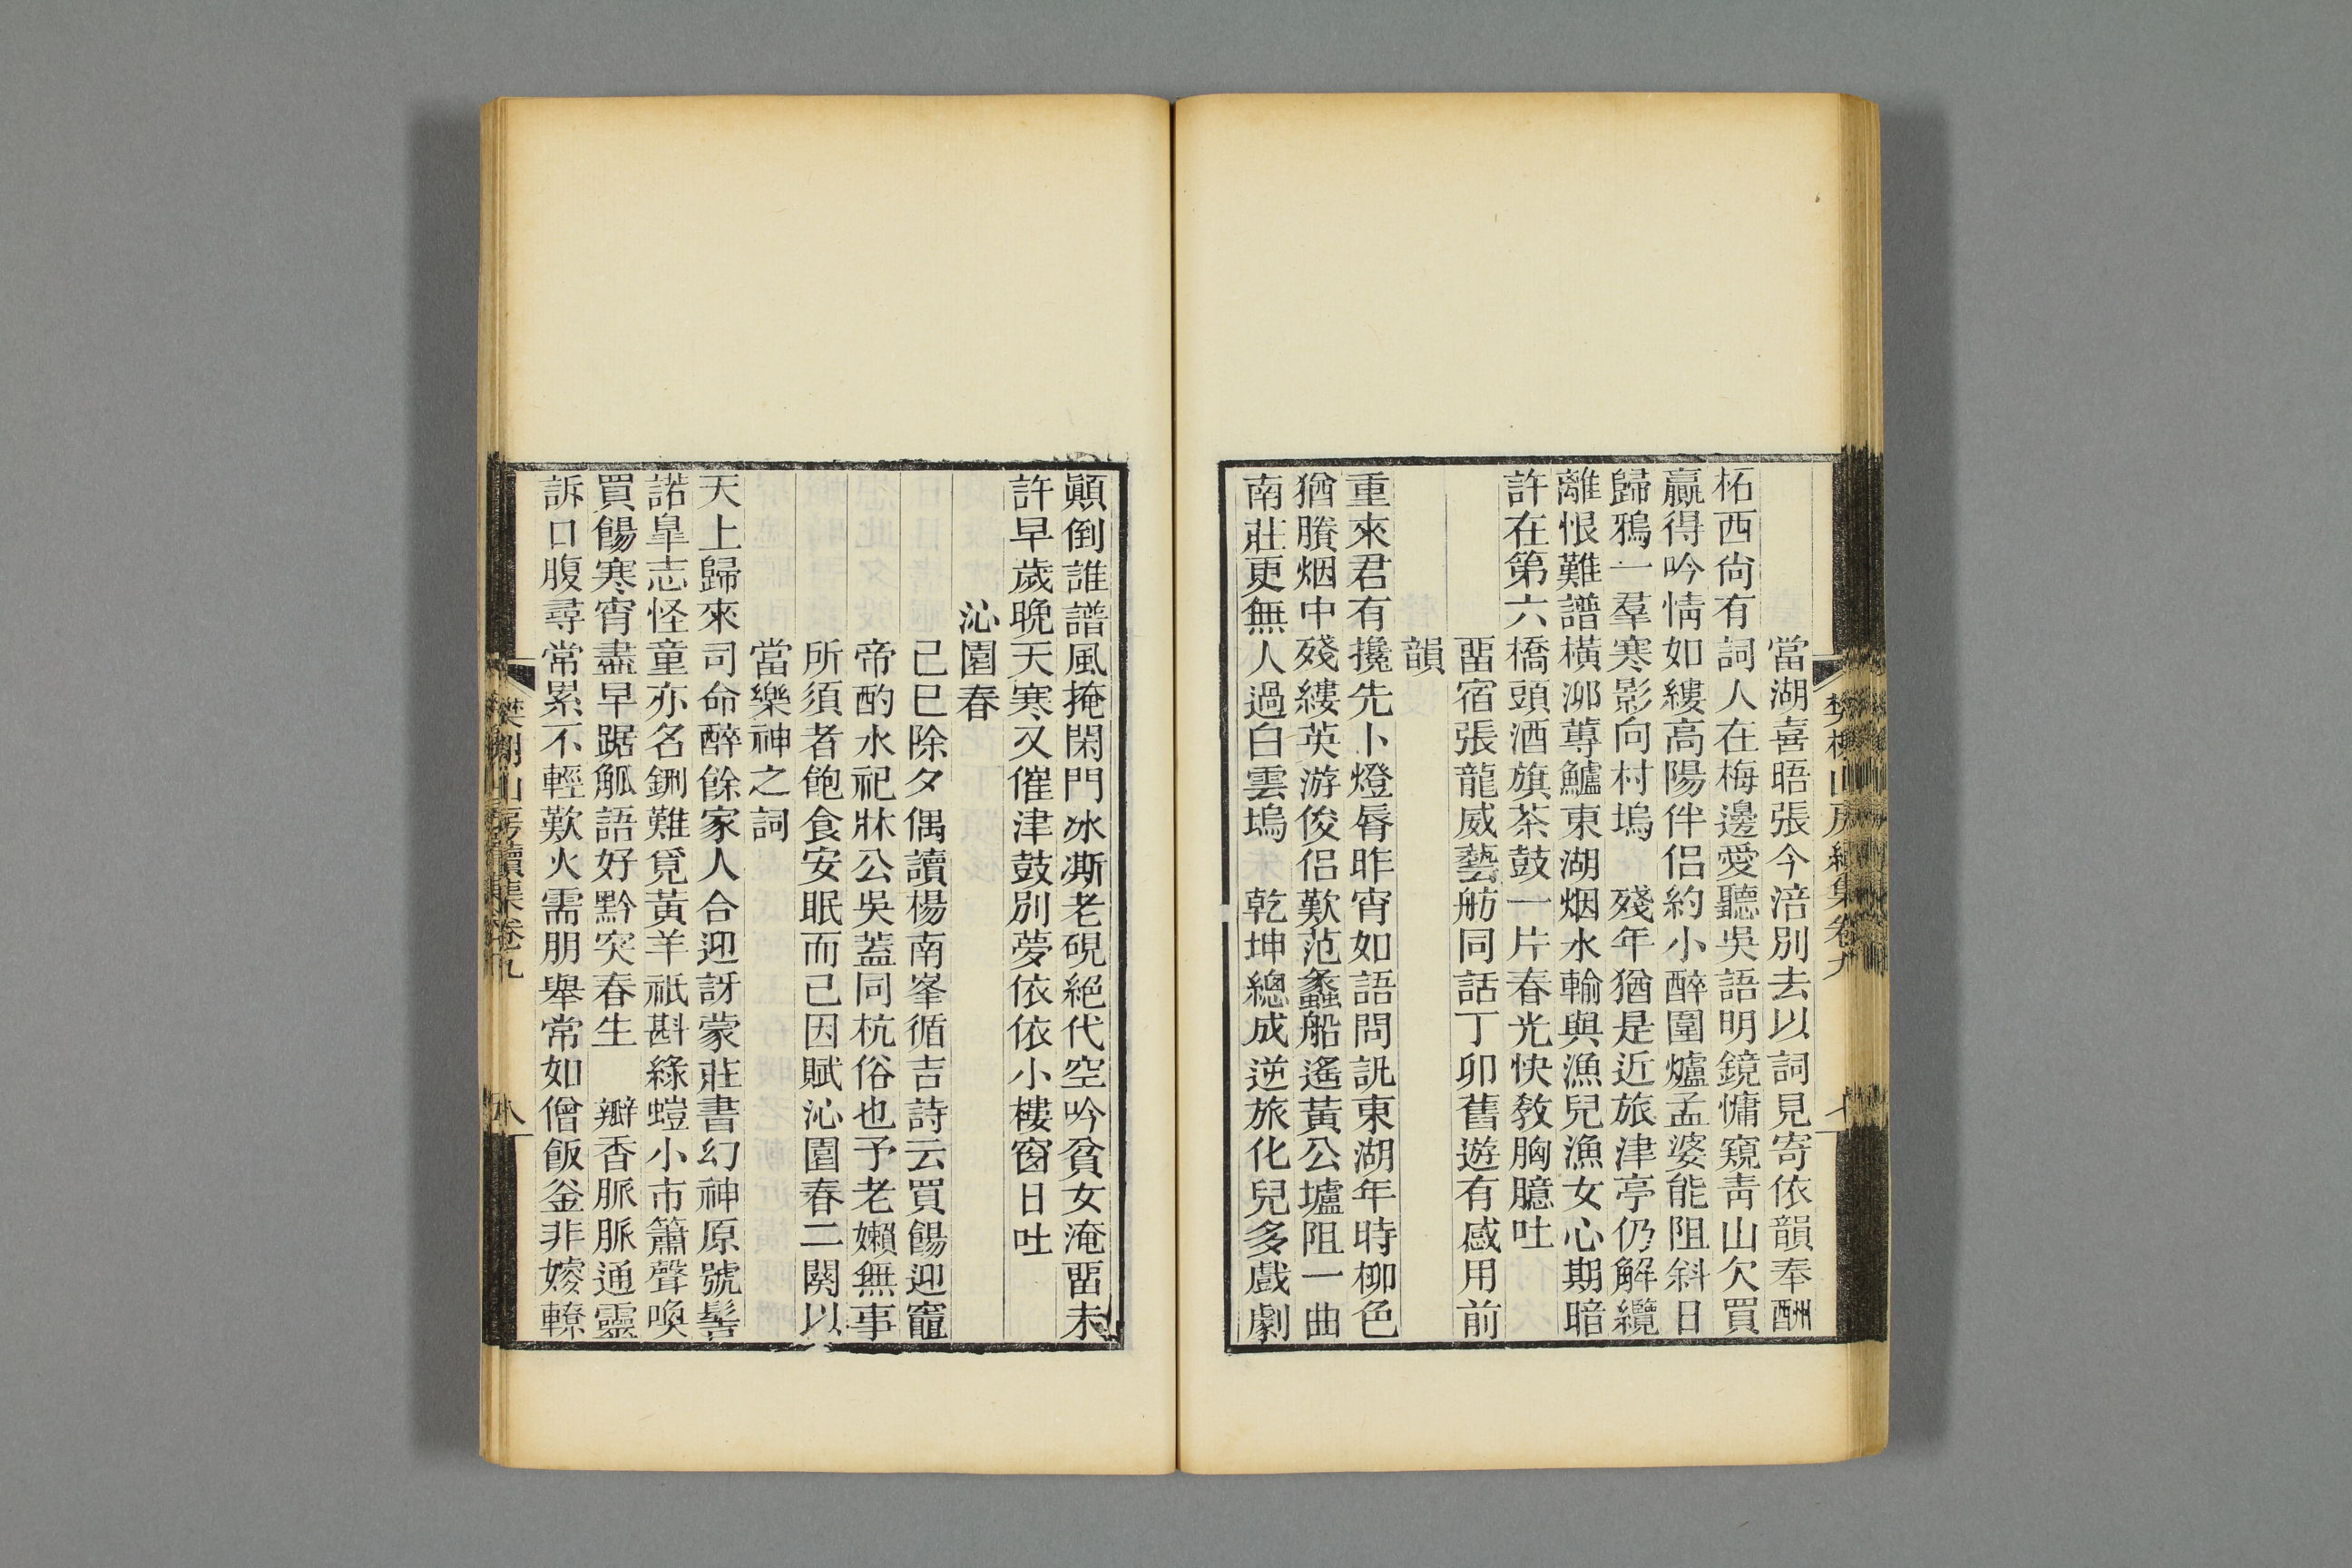 當湖喜晤張今涪別去以詞見寄依韻奉酬
柘西尙有詞人在梅邊愛聽吳語明鏡慵窺靑山欠買
贏得吟情如縷高陽伴侶約小醉圍爐孟婆能阻斜日
歸鴉一羣寒影向村塢　殘年猶是近旅津亭仍解纜
離恨難譜橫泖蓴鱸東湖烟水輸與漁兒漁女心期暗
許在第六橋頭酒旗茶鼓一片春光快敎胸臆吐
畱宿張龍威藝舫同話丁卯舊遊有感用前
韻
重來君有攙先卜燈脣昨宵如語問訊東湖年時柳色
猶賸烟中殘縷英游俊侶歎范蠡船遙黃公壚阻一曲
南莊更無人過白雲塢　乾坤總成逆旅化兒多戲劇
顚倒誰譜風掩閑門冰澌老硯絕代空吟貧女淹畱未
許早歲晚天寒又催津鼓別夢依依小樓窗日吐
沁園春
己巳除夕偶讀楊南峯循吉詩云買餳迎竈
帝酌水祀牀公吳蓋同杭俗也予老嬾無事
所須者飽食安眠而已因賦沁園春二闋以
當樂神之詞
天上歸來司命醉餘家人合迎訝蒙莊書幻神原號髻
諾皐志怪童亦名鉶難覓黃羊祇斟綠螘小市簫聲喚
買餳寒宵盡早踞觚語好黔突春生　瓣香脈脈通靈
訴口腹尋常累不輕歎火需朋舉常如僧飯釜非嫂轑
樊榭山房續集卷九
八